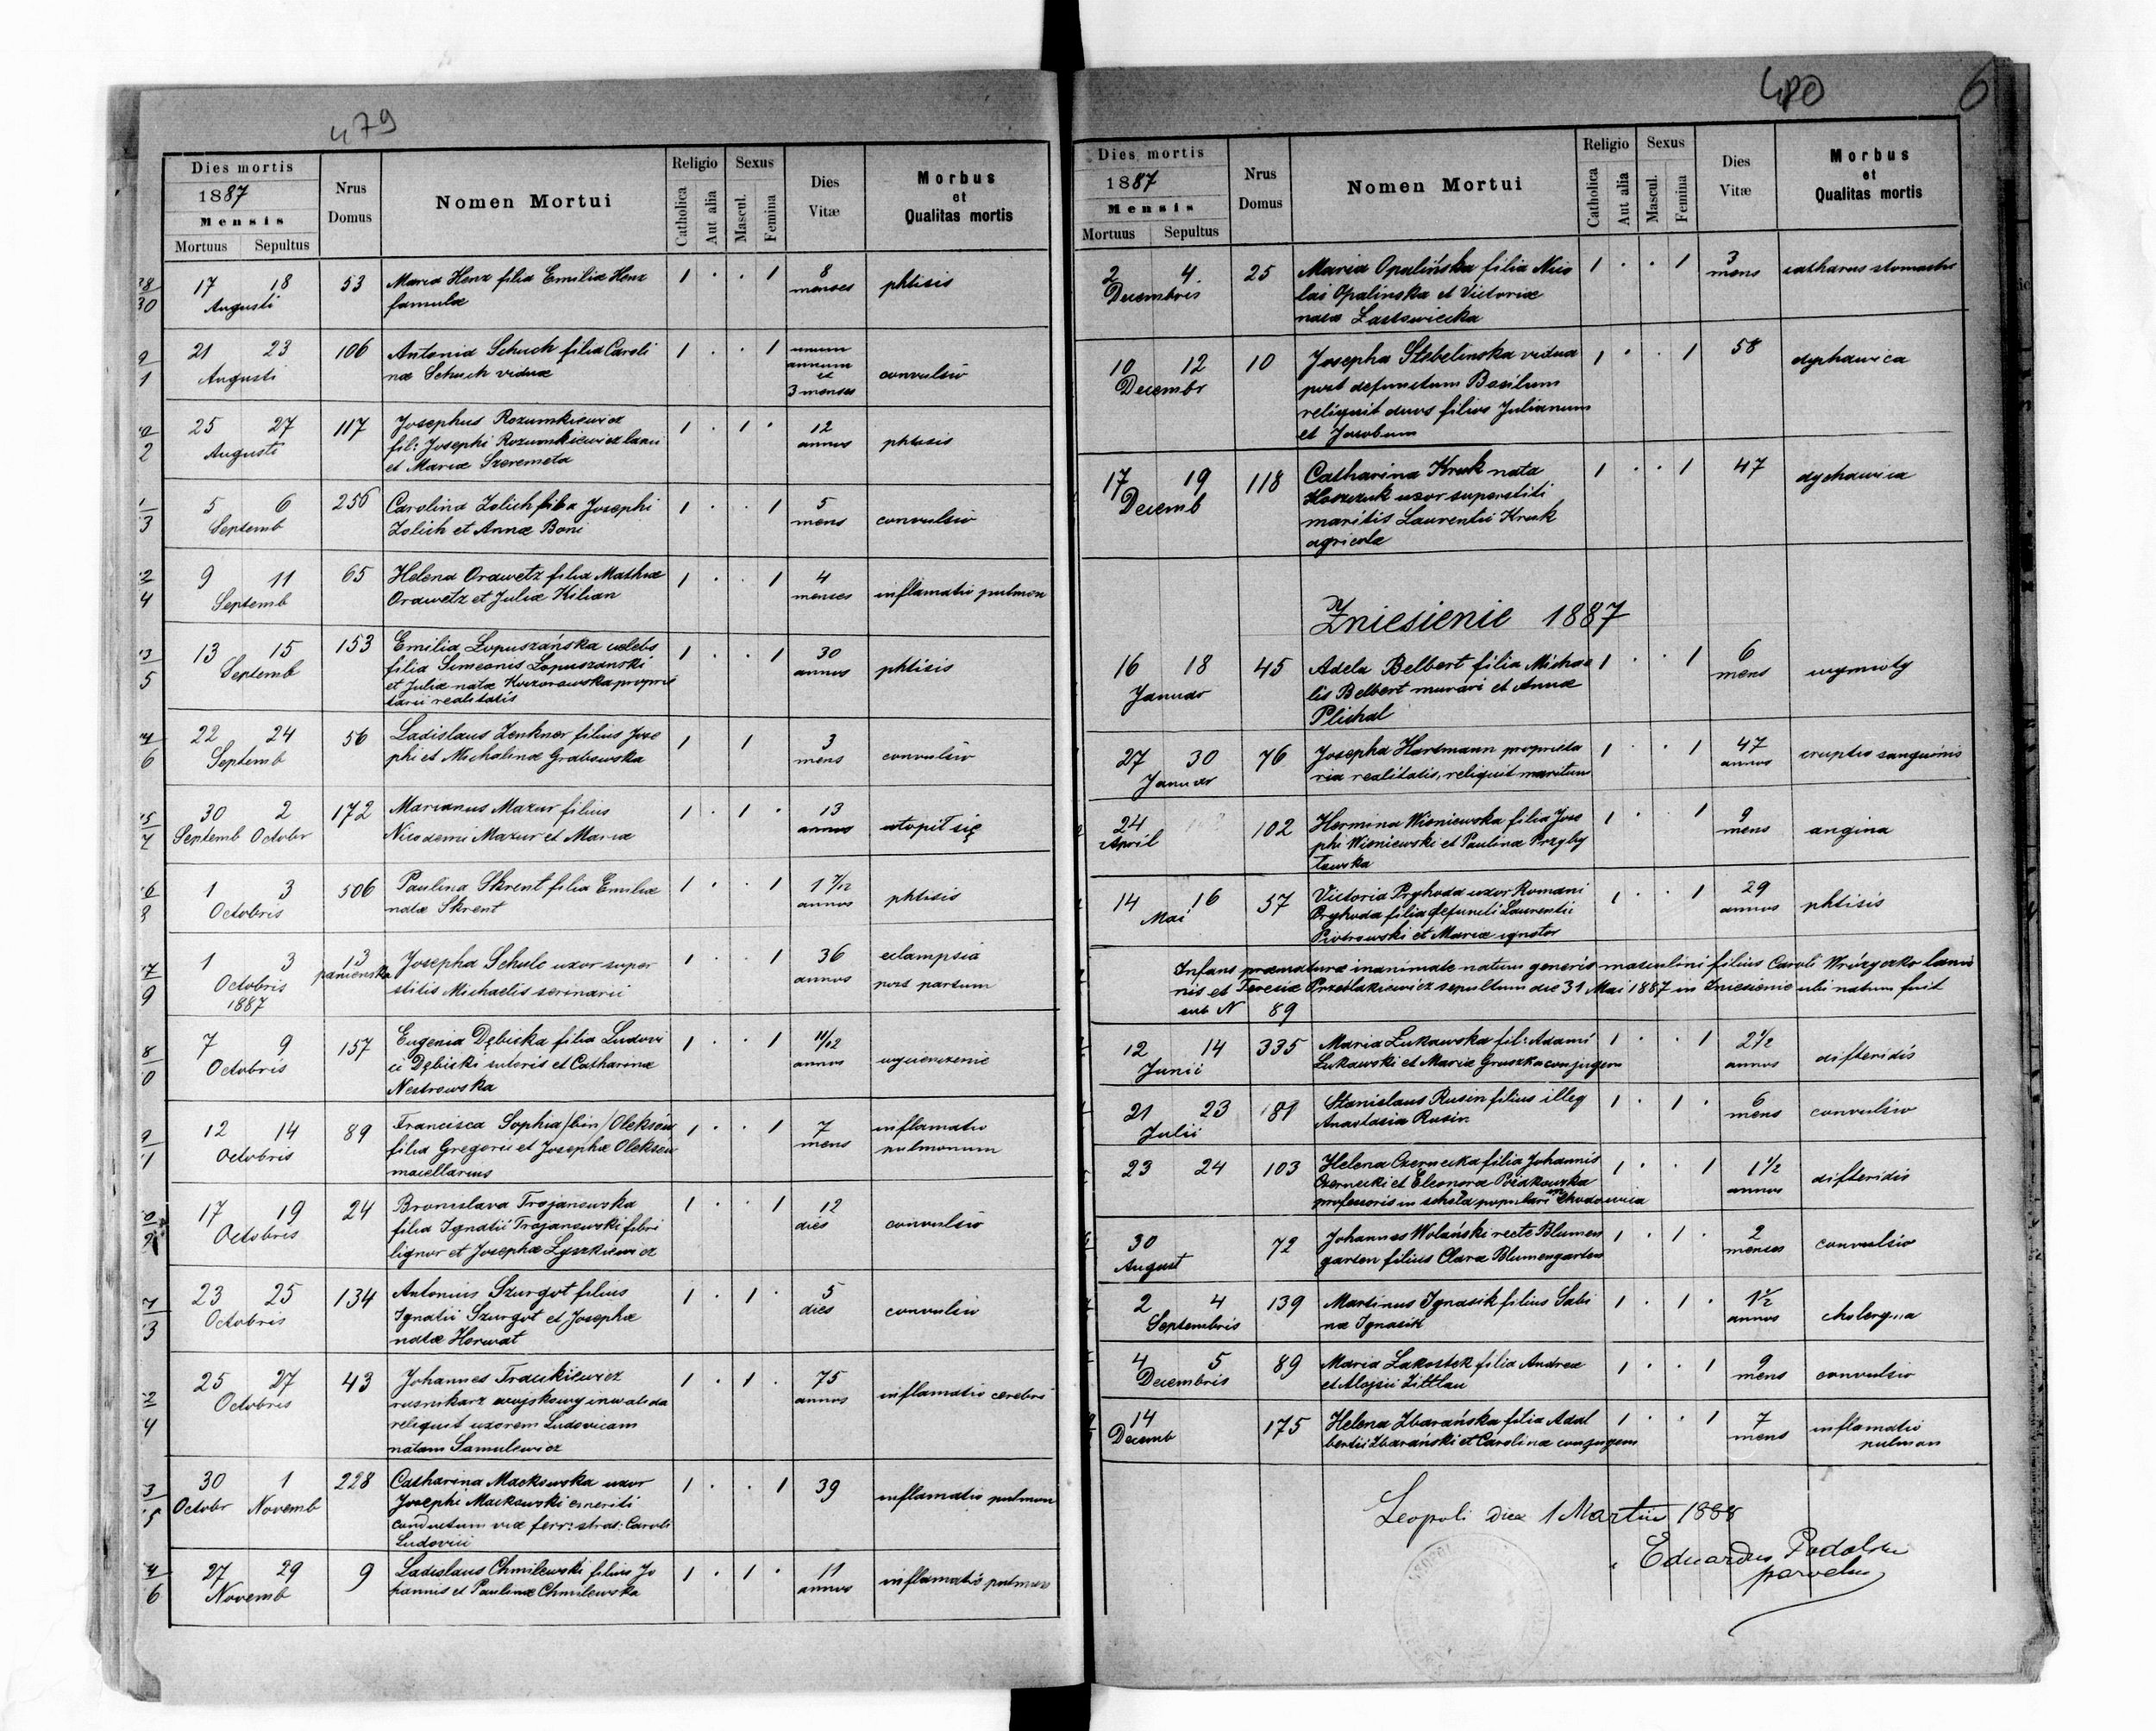 479
Dies mortis
1887
Mensis
Mortuus Sepultus
Nrus
Domus
Nomen Mortui
Religio
Catholica
Aut alia
Sexus
Mascul.
Femina
Dies
Vitæ
Morbus
et
Qualitas mortis
17 18 53 Maria Henz filia Emiliæ Henz 1 . . 1 8 phtisis
Augusti famulæ menses
21 23 106 Antonia Schuch filia Caroli 1 . . 1 unum convulsio
Augusti næ Schuch viduæ annum
et
3 menses
25 27 117 Josephus Rozumkiewicz 1 . 1 . 12 phtisis
Augusti fil: Josephi Rozumkiewicz annos
et Mariæ Szeremeta
5 6 256 Carolina Zolich filia Josephi 1 . . 1 5 convulsio
Septemb Zolich et Annæ Boni mens
9 11 65 Helena Orawetz filia Mathiæ 1 . . 1 4 inflamatio pulmon
Septemb Orawetz et Juliæ Kilian menses
13 15 153 Emilia Łopuszańska cælebs 1 . . 1 30 phtisis
Septemb filia Simeonis Łopuszanski annos
et Juliæ natæ proprie
tarii realitatis
22 24 56 Ladislaus Zenkner filius Jose 1 1 3 convulsio
Septemb phi et Michalinæ Grabowska mens
30 2 172 Marianus Mazur filius 1 . 1 . 13 utopił się
Septemb Octobr Nicodemi Mazur et Mariæ annos
1 3 506 Paulina Skrent filia Emiliæ 1 . . 1 1 7/12 phtisis
Octobris natæ Skrent annos
1 3 13 Josepha Schulc uxor super 1 . . 1 36 eclampsia
Octobris panienska stitis Michaelis annos post partum
1887
7 9 157 Eugenia Dębicka filia Ludovi 1 . . 1 11/12 wycieńczenie
Octobris ci Dębicki sutoris et Catharinæ annos
Nestrowska
12 14 89 Francisca Sophia /bin/ Oleksów 1 . . 1 7 inflamatio
Octobris filia Gregorii et Josephæ Oleksów mens pulmonum
macellarius
17 19 24 Bronislava Trojanowska 1 . . 1 12 convulsio
Octobris filia Ignatii Trojanowski fabri dies
lignar et Josephæ Łyszkiewicz
23 25 134 Antonius Szurgot filius 1 . 1 . 5 convulsio
Octobris Ignatii Szurgot et Josephæ dies
natæ Horwat
25 27 43 Johannes 1 . 1 . 75 inflamatio cerebri
Octobris rusnikarz wojskowy inwalida annos
reliquit uxorem Ludovicam
natam Samulewicz
30 1 228 Catharina Mackowska uxor 1 . . 1 39 inflamatio pulmon
Octobr Novemb Josephi Mackowski emeriti
viæ ferr: Caroli
Ludovici
27 29 9 Ladislaus Chmilewski filius Jo 1 . 1 . 11 inflamatio
Novemb hannis et Paulinæ Chmilewska annos
480 6
Dies mortis
1887
Mensis
Mortuus Sepultus
Nrus
Domus
Nomen Mortui
Religio
Catholica
Aut alia
Sexus
Mascul.
Femina
Dies
Vitæ
Morbus
et
Qualitas mortis
2 4 25 Maria Opalińska filia Nico 1 . . 1 3 catharus
Decembris lai Opalinska et Victoriæ mens
natæ Lastowiecka
10 12 10 Josepha Stebelinska vidua 1 . . 1 58 dychawica
Decembr post defunctum Basilum
reliquit duos filios Julianum
et Jacobum
17 19 118 Catharina Kruk nata 1 . . 1 47 dychawica
Decemb uxor superstiti
maritis Laurentii Kruk
agricolæ
Zniesienie 1887
16 18 45 Adela Belbert filia Michae 1 . . 1 6 wymioty
Januar lis Belbert murari et Annæ mens
Plichal
27 30 76 Josepha Hartmann proprieta 1 . . 1 47 eruptio sanguinis
Januar ria realitatis, reliquit maritum annos
24 102 Hermina Wisniewska filia Jose 1 . 1 9 angina
April phi Wisniewski et Paulinæ Przyby mens
łowska
14 16 57 Victoria Pryhoda uxor Romani 1 . 1 29 phtisis
Mai Pryhoda filia defuncti Laurentii annos
Piotrowski et Mariæ
Infans præmaturæ inanimate natum generis masculini filius Caroli lanio
nis et Teresiæ sepultum die 31 Mai 1887 in Zniesienie ubi natum fuit
sub N 89
12 14 335 Maria Łukawska fil: Adami 1 . . 1 2 1/2 difteridis
Junii Łukawski et Mariæ Gruszka conjugem annos
21 23 181 Stanislaus Rusin filius illeg 1 . 1 . 6 convulsio
Julii Anastasia Rusin mens
23 24 103 Helena Czernecka filia Johannis 1 . . 1 1 1/2 difteridis
Czernecki et Eleonoræ annos
professoris in schola populari
30 72 Johannes Wolański recte Blumen 1 . 1 . 2 convulsio
August garten filius Claræ Blumengarten menses
2 4 139 Martinus Ignasik filius Sabi 1 . 1 . 1 1/2 choleryna
Septembris næ Ignasik annos
4 5 89 Maria Lakostek filia Andreæ 1 . . 1 9 convulsio
Decembris et Aloysii Zittlau mens
14 175 Helena Zbarańska filia Adal 1 . . 1 7 inflamatio
Decemb bertii Zbarański et Carolinæ conjugem mens pulmon
Leopoli die 1 Martii 1888
Eduardus Podolski
parochus